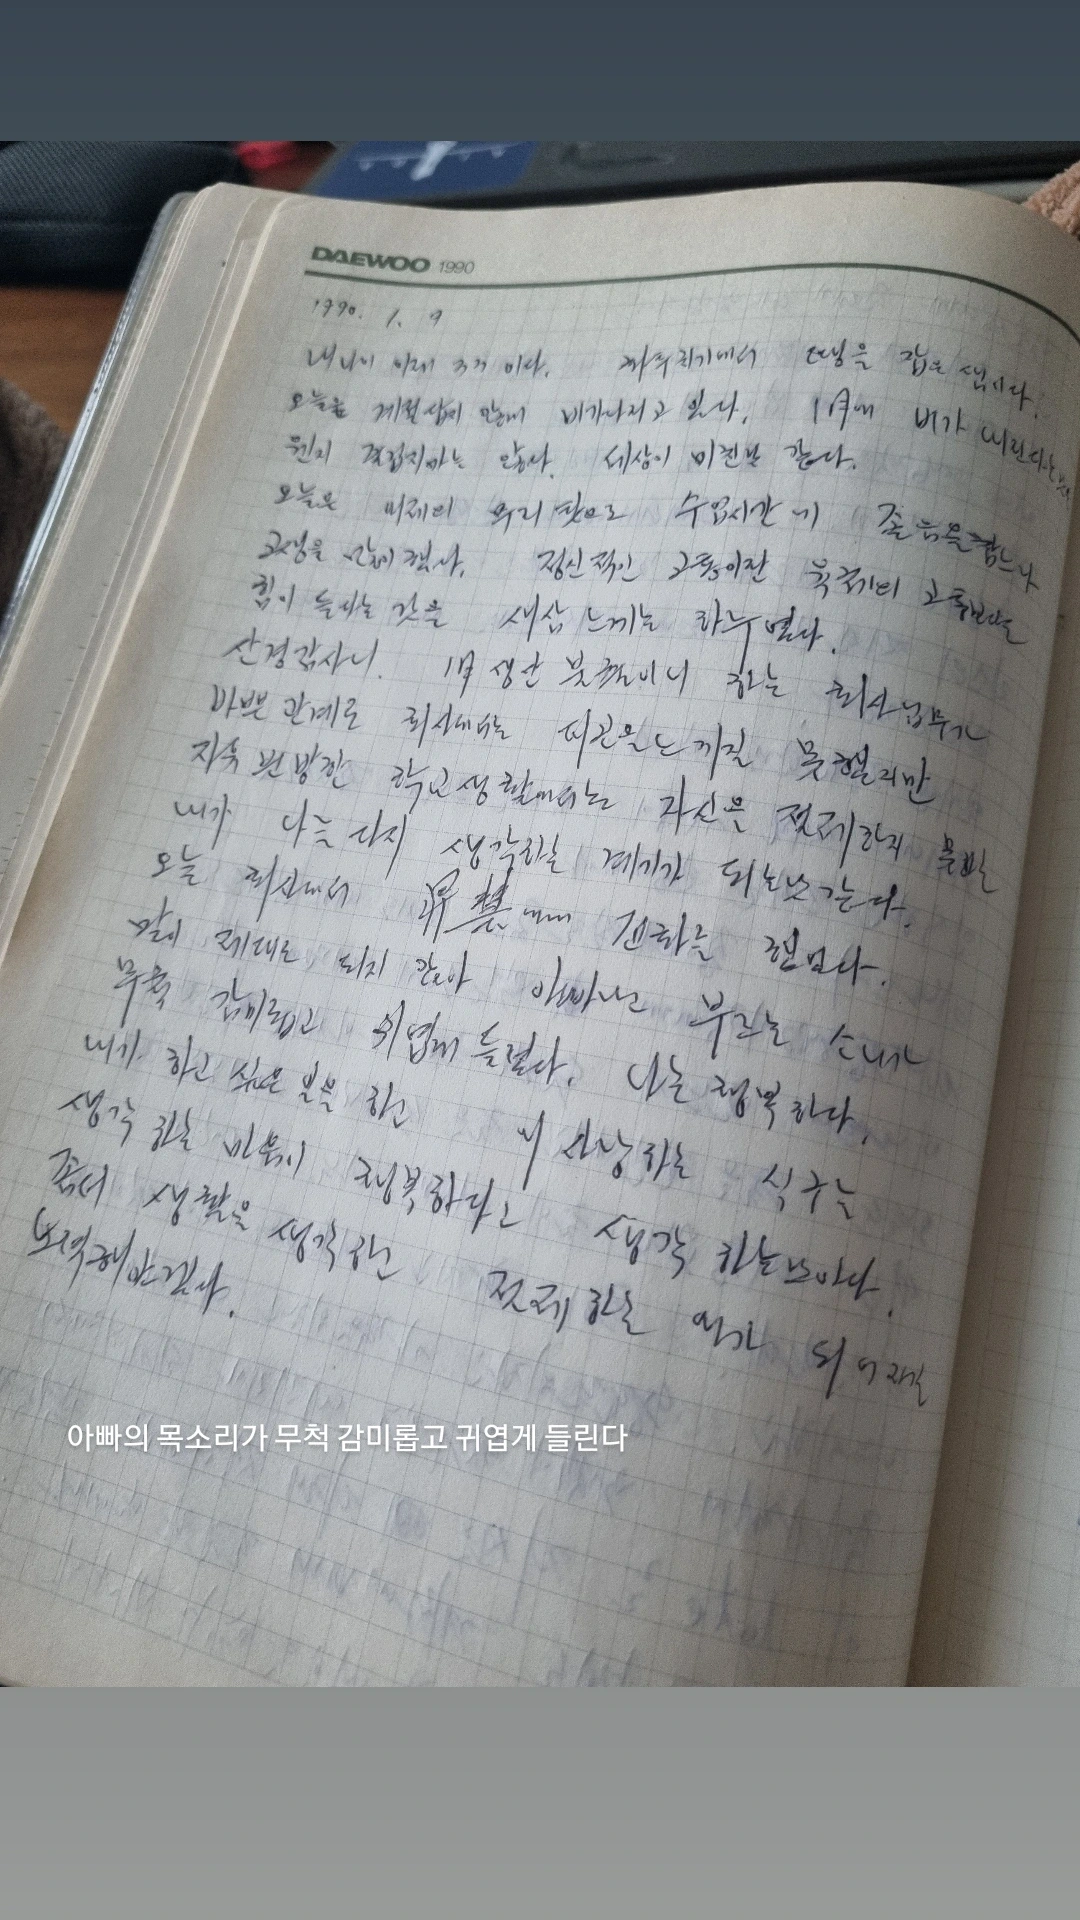 DAEWOO 1990
1990. 1. 9
내 나이 이제 37 이다. 에서 땡을 잡은 셈이다.
오늘은 계절 않게 비가 고 있다. 1月에 비가 내린다는
왠지 않다. 세상이 미친 것 같다.
오늘은 어제의 무리 탓으로 수업시간에 졸음을 참느라
고생을 많이 했다. 정신적인 고통이란 육체의 고통보다는
힘이 드는 것을 새삼 느끼는 하루였다.
산경감사니. 1月 생산 부품이니 하는 회사 업무가
바쁜 관계로 회사에서는 피곤을 느끼질 못했지만
지속 한 학교생활에서는 자신을 절제하지 못한
내가 나를 다시 생각하는 계기가 되는 것 같다.
오늘 회사에서 전화를 했었다.
말이 제대로 되지 않아 아빠라고 부르는 소리가
무척 감미롭고 귀엽게 들렸다. 나는 행복하다.
내가 하고 싶은 일을 하고 내 사랑하는 식구를
생각하는 마음이 행복하다고 생각하는 것이다.
좀더 생활을 생각하고 절제하는 내가 되어지길
노력해야겠다.
아빠의 목소리가 무척 감미롭고 귀엽게 들린다